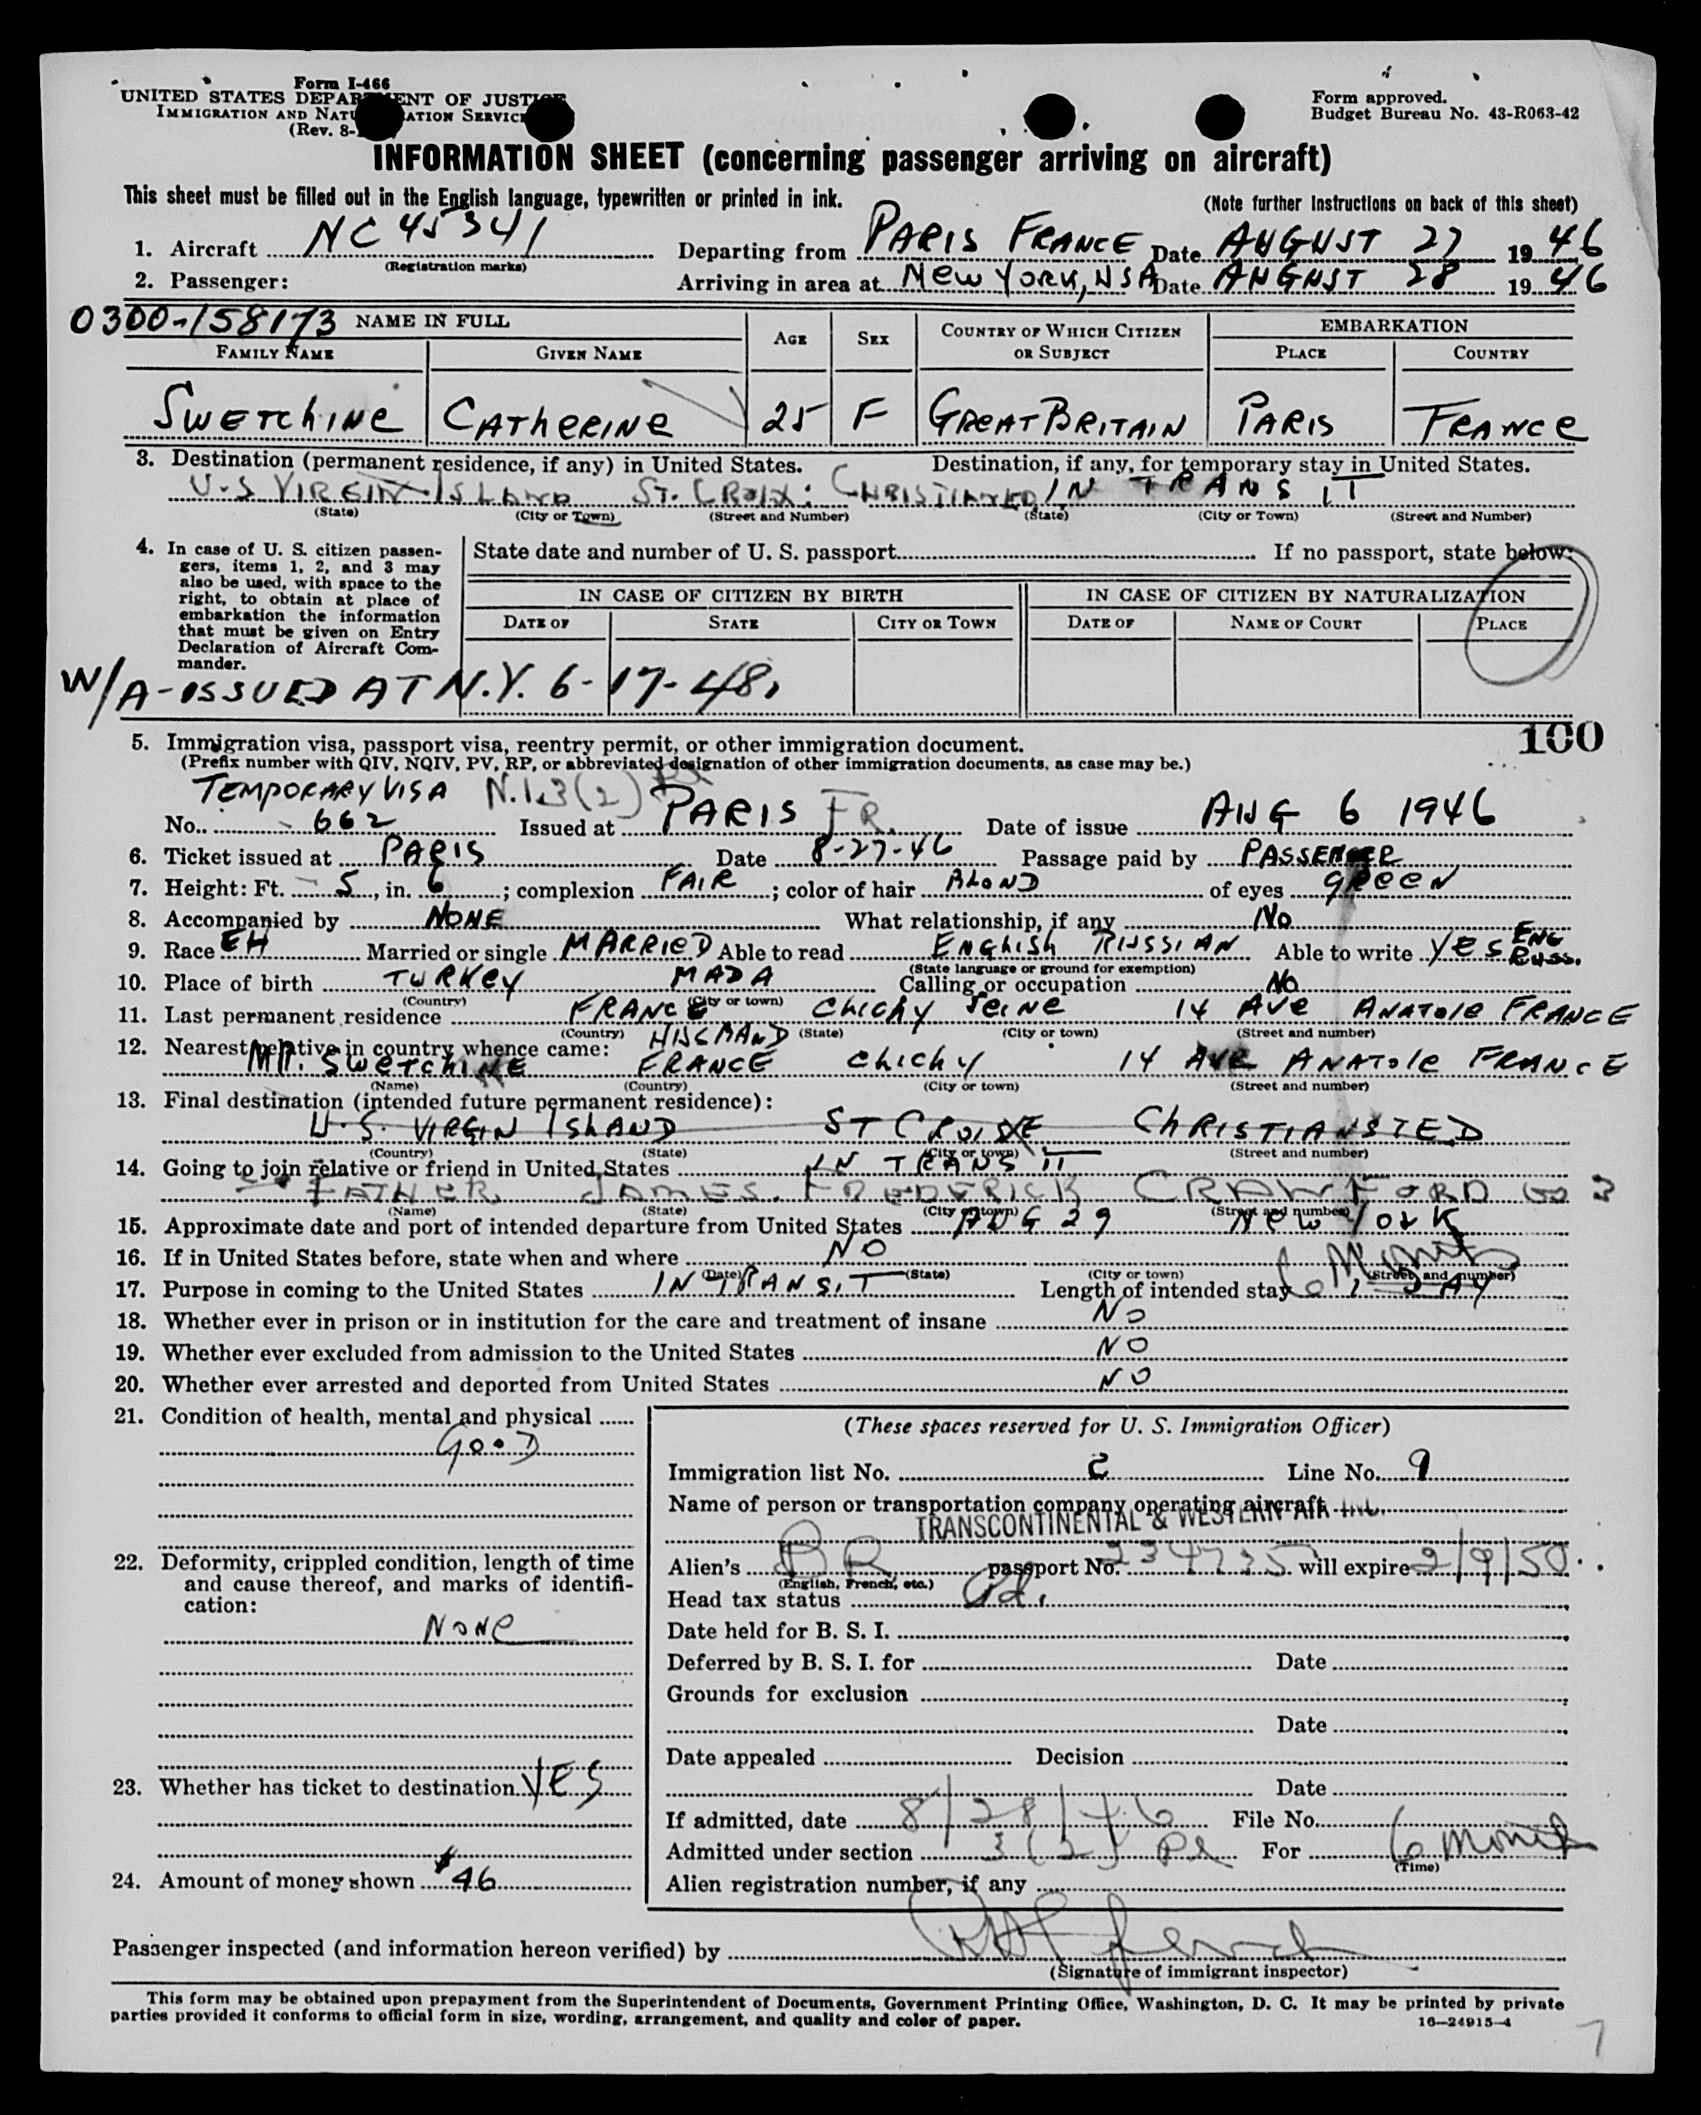 Form I-466
UNITED STATES DEPARTMENT OF JUSTICE
IMMIGRATION AND NATURALIZATION SERVICE
(Rev. 8-
Form approved.
Budget Bureau No. 43-R063-42
INFORMATION SHEET (concerning passenger arriving on aircraft)
This sheet must be filled out in the English language, typewritten or printed in ink.
(Note further instructions on back of this sheet)
1. Aircraft NC 45341 Departing from PARIS FRANCE Date AUGUST 27 1946
(Registration marks)
2. Passenger: Arriving in area at New York, USA Date AUGUST 28 1946
0300-158173 NAME IN FULL AGE SEX COUNTRY OF WHICH CITIZEN OR SUBJECT EMBARKATION
FAMILY NAME GIVEN NAME PLACE COUNTRY
SWETCHINE CATHERINE 25 F GREAT BRITAIN PARIS FRANCE
3. Destination (permanent residence, if any) in United States. Destination, if any, for temporary stay in United States.
U.S VIRGIN ISLAND ST. CROIX: CHRISTIANSTED IN TRANSIT
(State) (City or Town) (Street and Number) (State) (City or Town) (Street and Number)
4. In case of U. S. citizen passen-
gers, items 1, 2, and 3 may
also be used, with space to the
right, to obtain at place of
embarkation the information
that must be given on Entry
Declaration of Aircraft Com-
mander.
State date and number of U. S. passport If no passport, state below:
IN CASE OF CITIZEN BY BIRTH IN CASE OF CITIZEN BY NATURALIZATION
DATE OF STATE CITY OR TOWN DATE OF NAME OF COURT PLACE
W/A-ISSUED AT N.Y. 6-17-48.
100
5. Immigration visa, passport visa, reentry permit, or other immigration document.
(Prefix number with QIV, NQIV, PV, RP, or abbreviated designation of other immigration documents, as case may be.)
TEMPORARY VISA N.I.3(2)
No. 662 Issued at PARIS FR. Date of issue AUG 6 1946
6. Ticket issued at PARIS Date 8-27-46 Passage paid by PASSENGER
7. Height: Ft. 5, in. 6; complexion FAIR; color of hair BLOND of eyes GREEN
8. Accompanied by NONE What relationship, if any No
9. Race EH Married or single MARRIED Able to read ENGLISH RUSSIAN Able to write YES ENG RUSS.
(State language or ground for exemption)
10. Place of birth TURKEY MADA Calling or occupation No
(Country) (City or town)
11. Last permanent residence FRANCE CLICHY SEINE 14 AVE ANATOLE FRANCE
(Country) (State) (City or town) (Street and number)
12. Nearest relative in country whence came: HUSBAND
MR. SWETCHINE FRANCE CLICHY 14 AVE ANATOLE FRANCE
(Name) (Country) (City or town) (Street and number)
13. Final destination (intended future permanent residence):
U.S. VIRGIN ISLAND ST CROISXE CHRISTIANSTED
(Country) (State) (City or town) (Street and number)
14. Going to join relative or friend in United States IN TRANSIT
FATHER JAMES FREDERICK CRAWFORD
(Name) (State) (City or town) (Street and number)
15. Approximate date and port of intended departure from United States AUG 29 New York
16. If in United States before, state when and where NO
(Date) (State) (City or town) (Street and number)
17. Purpose in coming to the United States IN TRANSIT Length of intended stay 1 DAY 6 Months
18. Whether ever in prison or in institution for the care and treatment of insane NO
19. Whether ever excluded from admission to the United States NO
20. Whether ever arrested and deported from United States NO
21. Condition of health, mental and physical
GOOD
22. Deformity, crippled condition, length of time
and cause thereof, and marks of identifi-
cation:
NONE
23. Whether has ticket to destination YES
24. Amount of money shown $46
(These spaces reserved for U. S. Immigration Officer)
Immigration list No. 2 Line No. 9
Name of person or transportation company operating aircraft
TRANSCONTINENTAL & WESTERN AIR INC.
Alien's BR passport No. 234735 will expire 2/9/50
(English, French, etc.)
Head tax status Pd.
Date held for B. S. I.
Deferred by B. S. I. for Date
Grounds for exclusion
Date
Date appealed Decision
Date
If admitted, date 8/28/46 File No.
Admitted under section 3(2) For 6 Months
(Time)
Alien registration number, if any
Passenger inspected (and information hereon verified) by
(Signature of immigrant inspector)
This form may be obtained upon prepayment from the Superintendent of Documents, Government Printing Office, Washington, D. C. It may be printed by private
parties provided it conforms to official form in size, wording, arrangement, and quality and color of paper.
16—24915-4
7